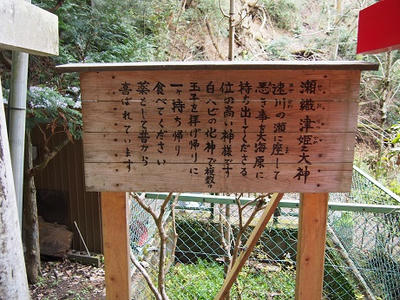 瀬織津姫大神
速川の瀬に座して
悪き事を大海原に
持ち出してくださる
位の高い神様です
白ヘビの化神で複数の
玉子を捧げ帰りに
一ヶ持ち帰り
食べてください
薬として昔から
喜ばれています